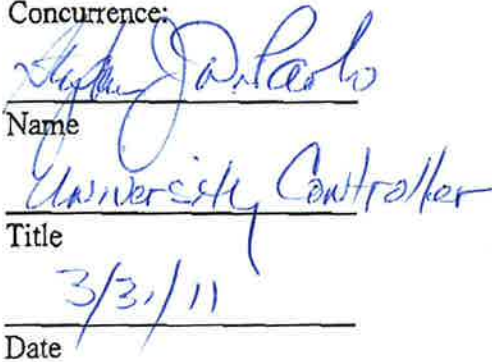 Concurrence:
Stephen J. DiPaolo
Name
University Controller
Title
3/31/11
Date